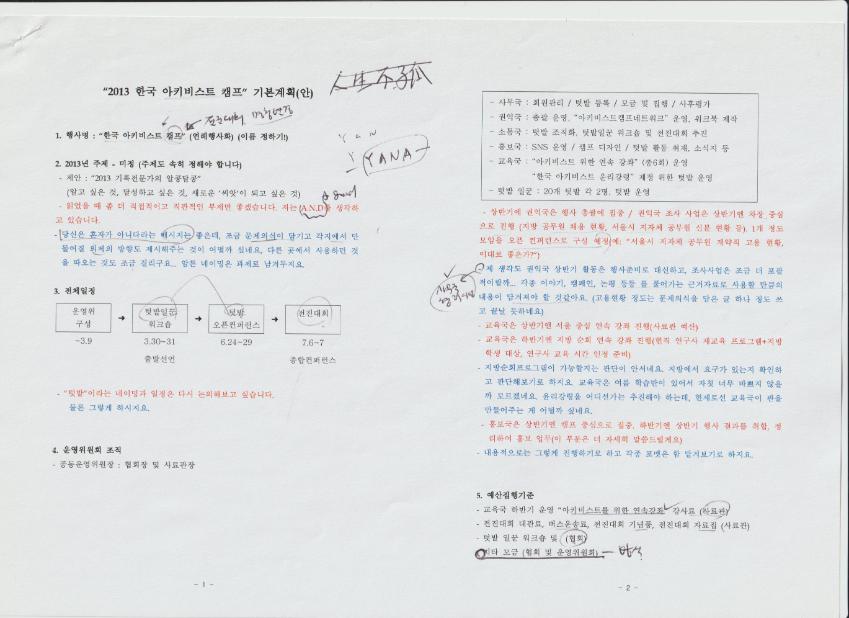 "2013 한국 아키비스트 캠프" 기본계획(안)
1. 행사명 : "한국 아키비스트 캠프" (연례행사화) (이름 정하기!)
YAN
YANA
2. 2013년 주제 - 미정 (주제도 속히 정해야 합니다)
- 제안 : "2013 기록전문가의 알콩달콩"
(알고 싶은 것, 달성하고 싶은 것, 새로운 '씨앗'이 되고 싶은 것)
- 읽었을 때 좀 더 직접적이고 직관적인 부제면 좋겠습니다. 저는 (A.N.D)를 생각하
고 있습니다.
- 당신은 혼자가 아니다라는 메시지는 좋은데, 조금 문제의식이 담기고 각지에서 만
들어질 의제의 방향도 제시해주는 것이 어떨까 싶네요. 다른 곳에서 사용하던 것
을 따오는 것도 조금 질리구요... 암튼 네이밍은 과제로 남겨두지요.
3. 전체일정
운영위 구성 → 텃밭일꾼 워크숍 → 텃밭 오픈컨퍼런스 → 전진대회
~3.9 3.30~31 6.24~29 7.6~7
출발선언 종합컨퍼런스
- "텃밭"이라는 네이밍과 일정은 다시 논의해보고 싶습니다.
물론 그렇게 하시지요.
4. 운영위원회 조직
- 공동운영위원장 : 협회장 및 사료관장
- 1 -
- 사무국 : 회원관리 / 텃밭 등록 / 모금 및 집행 / 사후평가
- 권익국 : 총괄 운영, "아키비스트캠프네트워크" 운영, 워크북 제작
- 소통국 : 텃밭 조직화, 텃밭일꾼 워크숍 및 전진대회 추진
- 홍보국 : SNS 운영 / 캠프 디자인 / 텃밭 활동 취재, 소식지 등
- 교육국 : "아키비스트 위한 연속 강좌" (총6회) 운영
"한국 아키비스트 윤리강령" 제정 위한 텃밭 운영
- 텃밭 일꾼 : 20개 텃밭 각 2명, 텃밭 운영
- 상반기에 권익국은 행사 총괄에 집중 / 권익국 조사 사업은 상반기엔 차장 중심
으로 진행 (지방 공무원 채용 현황, 서울시 지자체 공무원 신분 현황 등). 1개 정도
모임을 오픈 컨퍼런스로 구성 예정(예: "서울시 지자체 공무원 계약직 고용 현황,
이대로 좋은가?")
- 제 생각도 권익국 상반기 활동은 행사준비로 대신하고, 조사사업은 조금 더 포괄
적이럴까... 각종 이야기, 캠페인, 논평 등등 를 풀어가는 근거자료로 사용할 만큼의
내용이 담겨져야 할 것같아요. (고용현황 정도는 문제의식을 담은 글 하나 정도 쓰
고 끝날 듯하네요)
- 교육국은 상반기엔 서울 중심 연속 강좌 진행(사료관 예산)
- 교육국은 하반기엔 지방 순회 연속 강좌 진행(현직 연구사 재교육 프로그램+지방
학생 대상, 연구사 교육 시간 인정 준비)
- 지방순회프로그램이 가능할지는 판단이 안서네요. 지방에서 요구가 있는지 확인하
고 판단해보기로 하지요. 교육국은 여름 학습반이 있어서 자칫 너무 바쁘지 않을
까 모르겠네요. 윤리강령을 어디선가는 추진해야 하는데, 현재로선 교육국이 판을
만들어주는 게 어떨까 싶네요.
- 홍보국은 상반기엔 캠프 중심으로 집중, 하반기엔 상반기 행사 결과를 취합, 정
리하여 홍보 업무(이 부분은 더 자세히 말씀드릴게요)
- 내용적으로는 그렇게 진행하기로 하고 각종 포맷은 함 맡겨보기로 하지요.
5. 예산집행기준
- 교육국 하반기 운영 "아키비스트를 위한 연속강좌" 강사료 (사료관)
- 전진대회 대관료, 버스운송료, 전진대회 기념품, 전진대회 자료집 (사료관)
- 텃밭 일꾼 워크숍 및 (협회)
기타 모금 (협회 및 운영위원회)
- 2 -